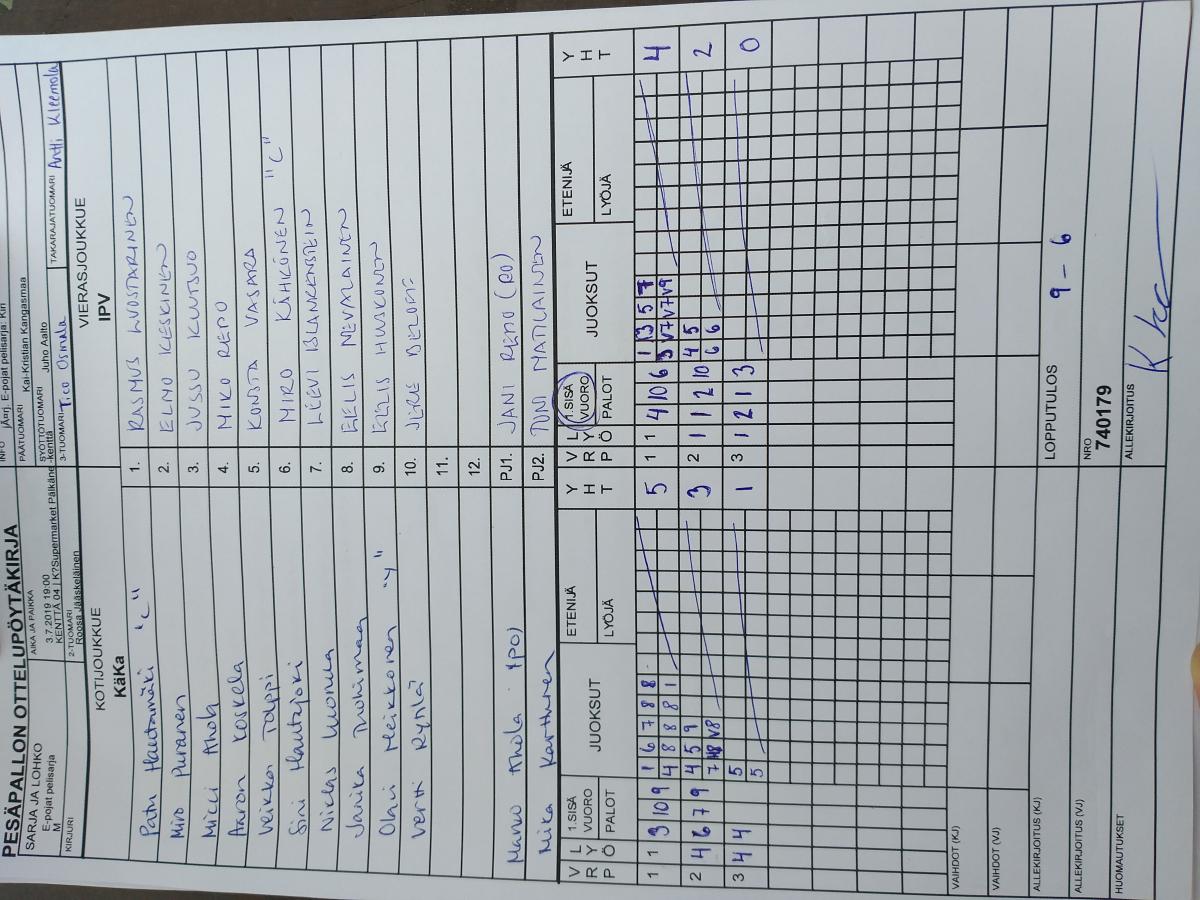 PESÄPALLON OTTELUPÖYTÄKIRJA
SARJA JA LOHKO
E-pojat pelisarja
M
AIKA JA PAIKKA
3.7.2019 19:00
KENTTÄ 04 | K?Supermarket Pälkäne -kenttä
INFO
E-pojat pelisarja: Kiri
PÄÄTUOMARI Kai-Kristian Kangasmaa
SYÖTTÖTUOMARI Juho Aalto
KIRJURI
2-TUOMARI
Roosa Jääskeläinen
3-TUOMARI Tico Osmala
TAKARAJATUOMARI Antti Kleemola
KOTIJOUKKUE
KäKa
VIERASJOUKKUE
IPV
Patu Hautamäki "C" 1. RASMUS LUOSTARINEN
Miro Puranen 2. ELMO KESKINEN
Micci Ahola 3. JUSSU KUUTSUO
Aaron Koskela 4. MIKO REPO
Veikka Tolppi 5. KONSTA VASARA
Sini Hautajoki 6. MIRO KÄHKÖNEN "C"
Niklas Luomla 7. LEEVI BLANKENSTEIN
Janika Tuohimaa 8. EELIS NEVALAINEN
Olavi Meikkonen "Y" 9. EELIS HUUSKONEN
Vertti Rynkä 10. JERE DELOFF
11.
12.
Manu Ahola (PO) PJ1. JANI REPO (RO)
Mika Karttunen PJ2. TONI MATILAINEN
V R P
L Y Ö
1.SISÄ VUORO
PALOT
JUOKSUT
ETENIJÄ
LYÖJÄ
Y H T
V R P
L Y Ö
1.SISÄ VUORO
PALOT
JUOKSUT
ETENIJÄ
LYÖJÄ
Y H T
1 1 3 10 9 1 6 7 8 8 5 1 1 4 10 6 1 13 5 7 4
4 8 8 8 1 3 V7 V7 V9
2 4 6 7 9 4 5 9 3 2 1 1 2 10 4 5 2
7 V8 6 6
3 4 4 5 1 3 1 2 1 3 0
5
VAIHDOT (KJ)
VAIHDOT (VJ)
ALLEKIRJOITUS (KJ)
LOPPUTULOS 9 - 6
ALLEKIRJOITUS (VJ)
NRO
740179
HUOMAUTUKSET
ALLEKIRJOITUS